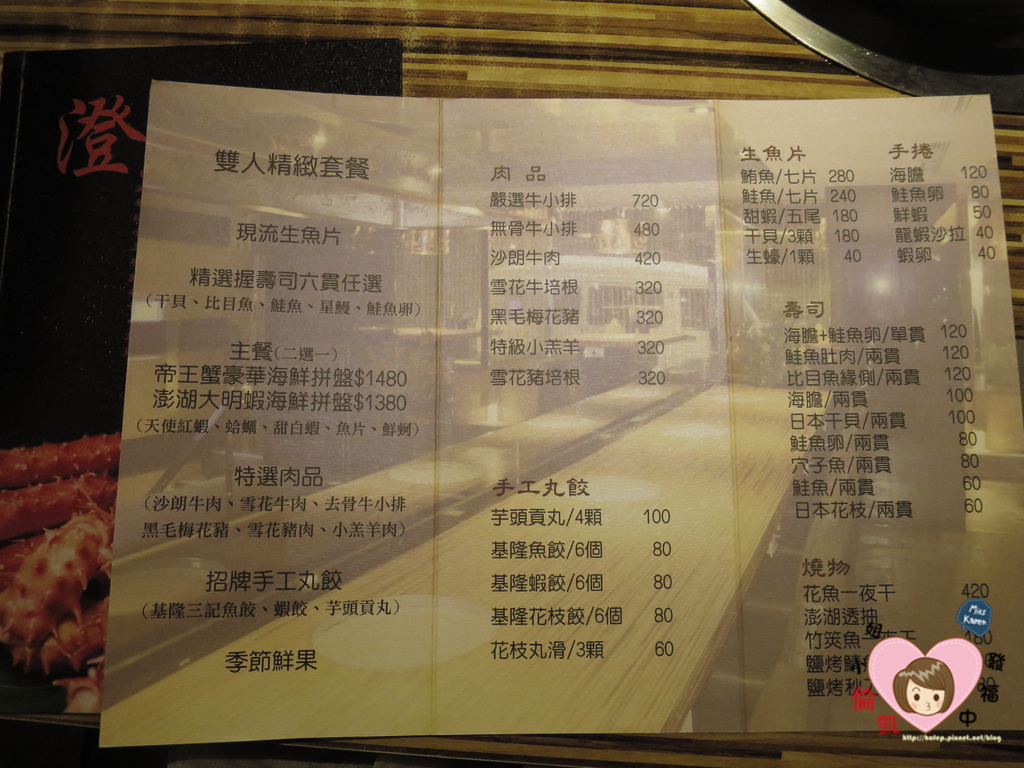 澄
雙人精緻套餐
現流生魚片
精選握壽司六貫任選
（干貝、比目魚、鮭魚、星鰻、鮭魚卵）
主餐（二選一）
帝王蟹豪華海鮮拼盤$1480
澎湖大明蝦海鮮拼盤$1380
（天使紅蝦、蛤蠣、甜白蝦、魚片、鮮蚵）
特選肉品
（沙朗牛肉、雪花牛肉、去骨牛小排
黑毛梅花豬、雪花豬肉、小羔羊肉）
招牌手工丸餃
（基隆三記魚餃、蝦餃、芋頭貢丸）
季節鮮果
肉品
嚴選牛小排 720
無骨牛小排 480
沙朗牛肉 420
雪花牛培根 320
黑毛梅花豬 320
特級小羔羊 320
雪花豬培根 320
手工丸餃
芋頭貢丸/4顆 100
基隆魚餃/6個 80
基隆蝦餃/6個 80
基隆花枝餃/6個 80
花枝丸滑/3顆 60
生魚片
鮪魚/七片 280
鮭魚/七片 240
甜蝦/五尾 180
干貝/3顆 180
生蠔/1顆 40
手捲
海膽 120
鮭魚卵 80
鮮蝦 50
龍蝦沙拉 40
蝦卵 40
壽司
海膽+鮭魚卵/單貫 120
鮭魚肚肉/兩貫 120
比目魚緣側/兩貫 120
海膽/兩貫 100
日本干貝/兩貫 100
鮭魚卵/兩貫 80
穴子魚/兩貫 80
鮭魚/兩貫 60
日本花枝/兩貫 60
燒物
花魚一夜干 420
澎湖透抽
竹筴魚一夜干 180
鹽烤
鹽烤秋
Miss Karen
姐
偷凱
發福中
http://bafep.pixnet.net/blog